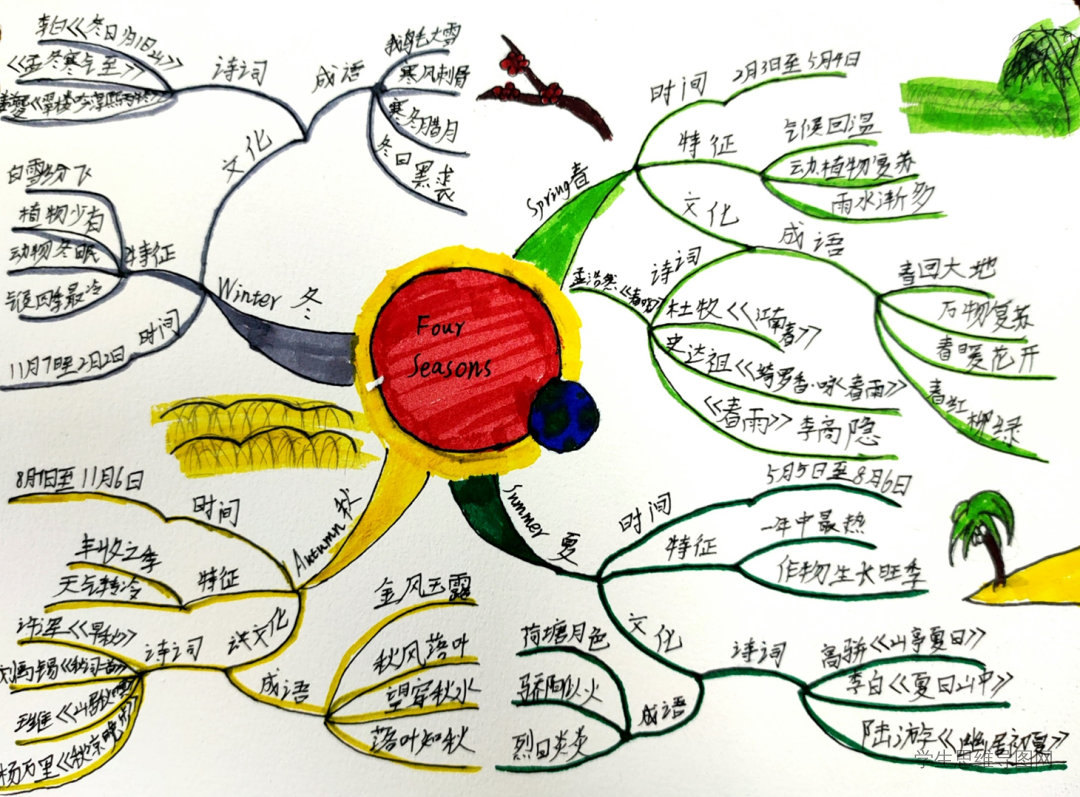 Four
Seasons
Spring春
时间
2月3日至5月4日
特征
气候回温
动植物复苏
雨水渐多
文化
成语
春回大地
万物复苏
春暖花开
春红柳绿
诗词
孟浩然《春晓》
杜牧《江南春》
史达祖《绮罗香·咏春雨》
《春雨》李商隐
Summer 夏
时间
5月5日至8月6日
特征
一年中最热
作物生长旺季
文化
诗词
高骈《山亭夏日》
李白《夏日山中》
陆游《幽居初夏》
成语
荷塘月色
骄阳似火
烈日炎炎
Autumn 秋
时间
8月7日至11月6日
特征
丰收之季
天气转冷
文化
诗词
许浑《早秋》
刘禹锡《秋词二首》
王维《山居秋暝》
杨万里《秋凉晚步》
成语
金风玉露
秋风落叶
望穿秋水
落叶知秋
Winter 冬
时间
11月7日至2月2日
特征
白雪纷飞
植物少有
动物冬眠
气候四季最冷
文化
诗词
李白《冬日归旧山》
《孟冬寒气至》
成语
鹅毛大雪
寒风刺骨
寒冬腊月
冬日黑裘
学生思维导图网